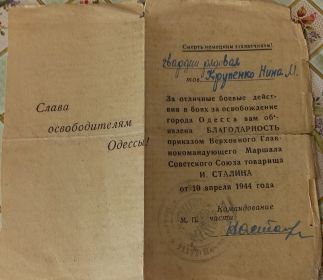 Слава
освободителям
Одессы!
Смерть немецким захватчикам!
гвардии рядовая
тов. Крупенко Нина М.
За отличные боевые дейст-
вия в боях за освобождение
города Одесса вам об'-
явлена БЛАГОДАРНОСТЬ
приказом Верховного Глав-
нокомандующего Маршала
Советского Союза товарища
И. СТАЛИНА
от 10 апреля 1944 года
Командование
М. П. части